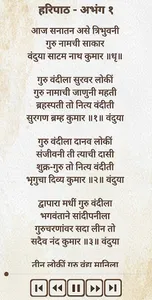 हरिपाठ - अभंग १
आज सनातन असे त्रिभुवनी
गुरु नामची साकार
वंदुया साटम नाथ कुमार ॥धृ॥
गुरु वंदीला सुरवर लोकीं
गुरु नामाची जाणुनी महती
ब्रहस्पती तो नित्य वंदीती
सुरगण ब्रम्ह कुमार ॥१॥ वंदुया
गुरु वंदीला दानव लोकीं
संजीवनी ती त्याची दासी
शुक्र-गुरु तो नित्य वंदीती
भृगुचा दिव्य कुमार ॥२॥ वंदुया
द्वापारा मधीं गुरु वंदीला
भगवंताने सांदीपनीला
गुरुचरणांवर सदा लीन तो
सदैव नंद कुमार ॥३॥ वंदुया
तीन लोकीं गुरु वंद्य मानिला